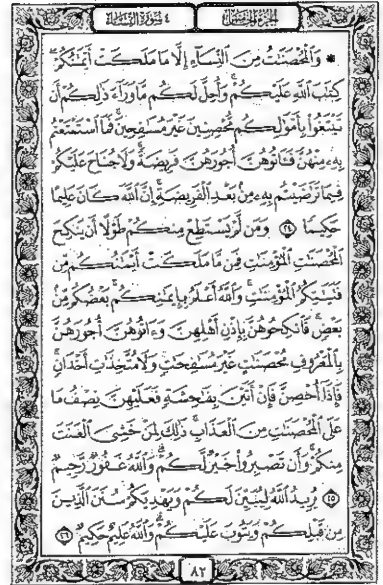 الجزء الخامس ٤ سورة النساء
* وَٱلْمُحْصَنَٰتُ مِنَ ٱلنِّسَآءِ إِلَّا مَا مَلَكَتْ أَيْمَٰنُكُمْ
كِتَٰبَ ٱللَّهِ عَلَيْكُمْ وَأُحِلَّ لَكُم مَّا وَرَآءَ ذَٰلِكُمْ أَن
تَبْتَغُوا۟ بِأَمْوَٰلِكُم مُّحْصِنِينَ غَيْرَ مُسَٰفِحِينَ فَمَا ٱسْتَمْتَعْتُم
بِهِۦ مِنْهُنَّ فَـَٔاتُوهُنَّ أُجُورَهُنَّ فَرِيضَةً وَلَا جُنَاحَ عَلَيْكُمْ
فِيمَا تَرَٰضَيْتُم بِهِۦ مِنۢ بَعْدِ ٱلْفَرِيضَةِ إِنَّ ٱللَّهَ كَانَ عَلِيمًا
حَكِيمًا ٢٤ وَمَن لَّمْ يَسْتَطِعْ مِنكُمْ طَوْلًا أَن يَنكِحَ
ٱلْمُحْصَنَٰتِ ٱلْمُؤْمِنَٰتِ فَمِن مَّا مَلَكَتْ أَيْمَٰنُكُم مِّن
فَتَيَٰتِكُمُ ٱلْمُؤْمِنَٰتِ وَٱللَّهُ أَعْلَمُ بِإِيمَٰنِكُم بَعْضُكُم مِّنۢ
بَعْضٍ فَٱنكِحُوهُنَّ بِإِذْنِ أَهْلِهِنَّ وَءَاتُوهُنَّ أُجُورَهُنَّ
بِٱلْمَعْرُوفِ مُحْصَنَٰتٍ غَيْرَ مُسَٰفِحَٰتٍ وَلَا مُتَّخِذَٰتِ أَخْدَانٍ
فَإِذَآ أُحْصِنَّ فَإِنْ أَتَيْنَ بِفَٰحِشَةٍ فَعَلَيْهِنَّ نِصْفُ مَا
عَلَى ٱلْمُحْصَنَٰتِ مِنَ ٱلْعَذَابِ ذَٰلِكَ لِمَنْ خَشِىَ ٱلْعَنَتَ
مِنكُمْ وَأَن تَصْبِرُوا۟ خَيْرٌ لَّكُمْ وَٱللَّهُ غَفُورٌ رَّحِيمٌ
٢٥ يُرِيدُ ٱللَّهُ لِيُبَيِّنَ لَكُمْ وَيَهْدِيَكُمْ سُنَنَ ٱلَّذِينَ
مِن قَبْلِكُمْ وَيَتُوبَ عَلَيْكُمْ وَٱللَّهُ عَلِيمٌ حَكِيمٌ ٢٦
٨٢